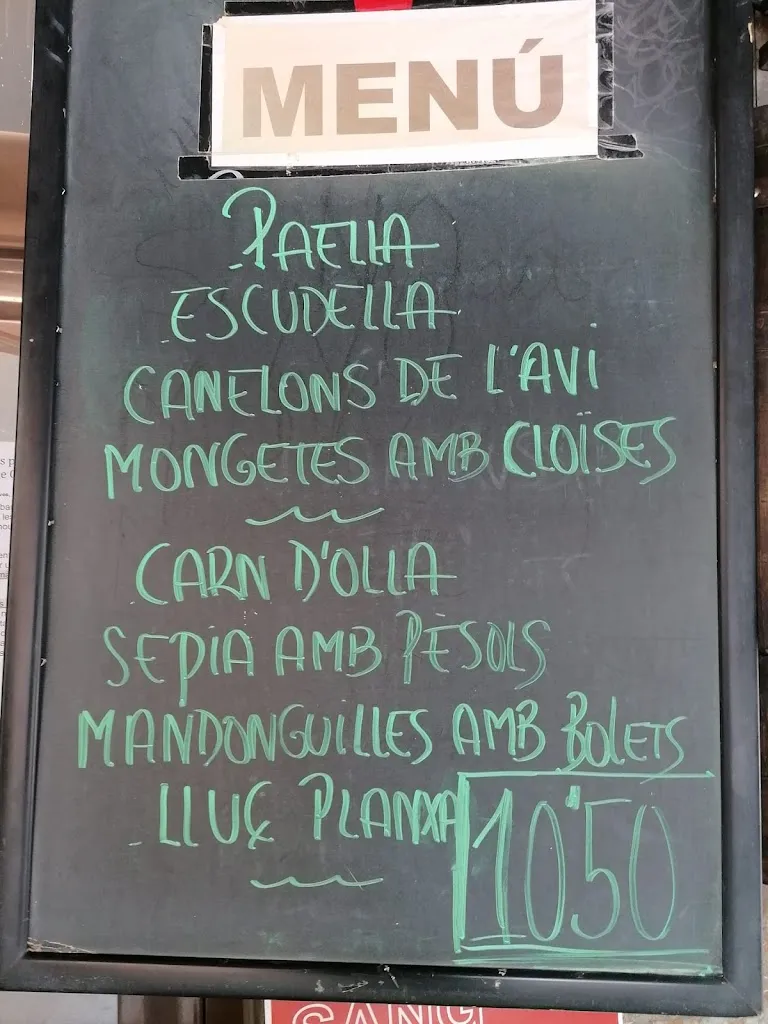 MENÚ
PAELLA
ESCUDELLA
CANELONS DE L'AVI
MONGETES AMB CLOÏSES
CARN D'OLLA
SEPIA AMB PÈSOLS
MANDONGUILLES AMB BOLETS
LLUÇ PLANXA
10'50